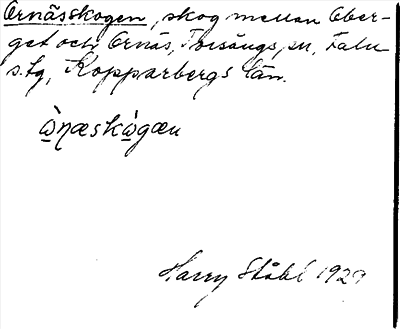 Ornässkogen, skog mellan Ober-
get och Ornäs, Torsångs sn, Falu
s. tg, Kopparbergs län.
ὼηæskὼgæn
Harry Ståhl 1929